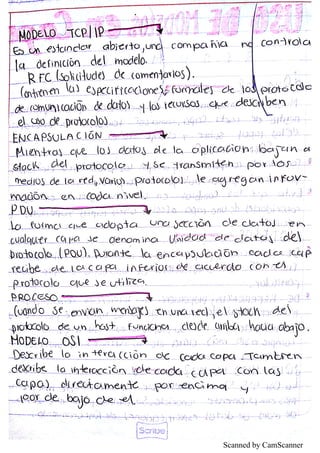 MODELO TCP/IP
Es un estandar abierto, una compañia no controla
la definición del modelo.
RFC (solicitudes de comentarios).
Contienen las especificaciones formales de los protocolo
de comunicación de datos y los recursos que describen
el uso de protocolos
ENCAPSULACIÓN
Mientras que los datos de la aplicacion bajan a
stack del protocolo y se transmiten por los
medios de la red, varios protocolos le agregan infor-
mación en cada nivel.
PDU
La forma que adopta una sección de datos en
cualquier capa se denomina Unidad de datos del
protocolo (PDU). Durante la encapsulación cada cap
recibe de la capa inferior de acuerdo con el
protocolo que se utiliza.
PROCESO
Cuando se envian mensajes en una red, el stack del
protocolo de un host funciona desde arriba hacia abajo.
MODELO OSI
Describe lo interacción de cada capa. Tambien
describe la interacción de cada capa con las
capas directamente por encima y
por de bajo de el
Scribe
Scanned by CamScanner